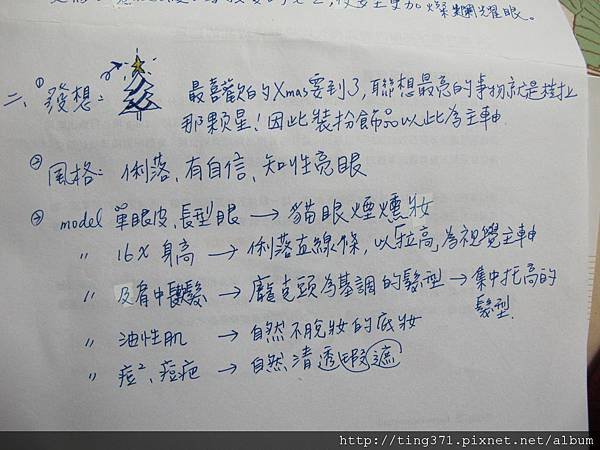 燦爛耀眼。
二、① 發想：最喜歡的Xmas要到了，聯想最亮的事物就是樹上
那顆星！因此裝扮飾品以此為主軸
② 風格：俐落、有自信、知性亮眼
③ model 單眼皮、長型眼 → 貓眼煙燻妝
〃 16X 身高 → 俐落直線條，以「拉高」為視覺主軸
〃 及肩中長髮 → 龐克頭為基調的髮型 → 集中托高的
髮型.
〃 油性肌 → 自然不脫妝的底妝
〃 痘²、痘疤 → 自然清透、瑕遮
http://ting371.pixnet.net/album